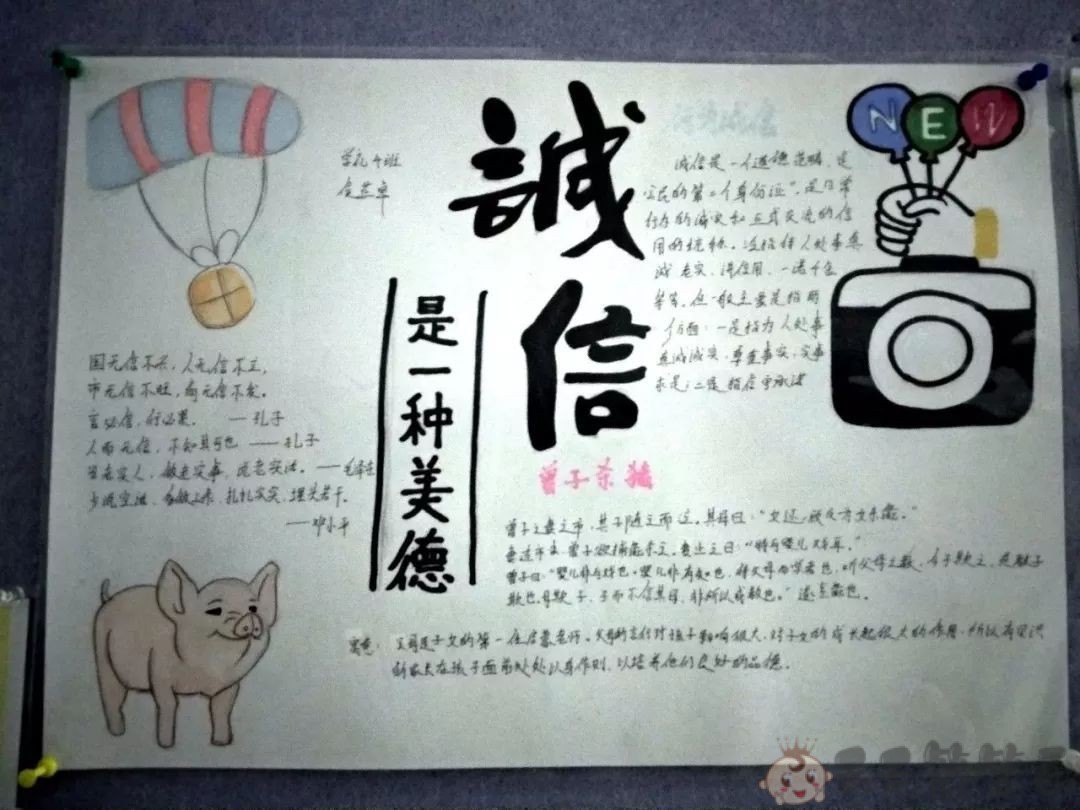 誠信
是一种美德
NEW
学前4班
诚信是一个道德范畴,是
公民的第二个身份证",是日常
行为的诚实和正式交流的信
用的统称。泛指待人处事真
诚、老实、讲信用,一诺千金
等等。但一般主要是指两
个方面:一是指为人处事
真诚诚实,尊重事实,实事
求是;二是指信守承诺
国无信不兴,人无信不立,
市无信不旺,商无信不发。
言必信,行必果。 ——孔子
人而无信,不知其可也 ——孔子
当老实人,做老实事,说老实话。 ——毛泽东
少说空话,多做工作,扎扎实实,埋头苦干。
——邓小平
曾子杀猪
曾子之妻之市,其子随之而泣。其母曰:"女还,顾反为女杀彘。"
妻适市来,曾子欲捕彘杀之。妻止之曰:"特与婴儿戏耳。"
曾子曰:"婴儿非与戏也。婴儿非有知也,待父母而学者也,听父母之教。今子欺之,是教子
欺也。母欺子,子而不信其母,非所以成教也。"遂烹彘也。
寓意: 父母是子女的第一任启蒙老师。父母的言行对孩子影响很大,对子女的成长起很大的作用,所以有见识
的家长在孩子面前处处以身作则,以培养他们良好的品德。